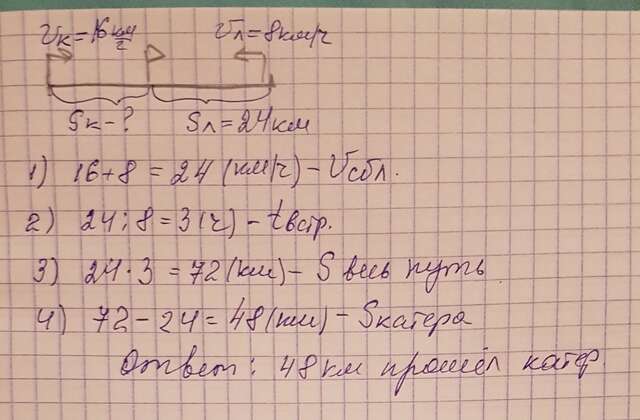 Vк=16 км/ч Vл=8км/ч
Sк-? Sл=24км
1) 16+8=24 (км/ч)-Vсбл.
2) 24:8=3(ч)-tвстр.
3) 24·3=72(км)-S весь путь
4) 72-24=48(км)-Sкатера
Ответ: 48км прошёл катер.